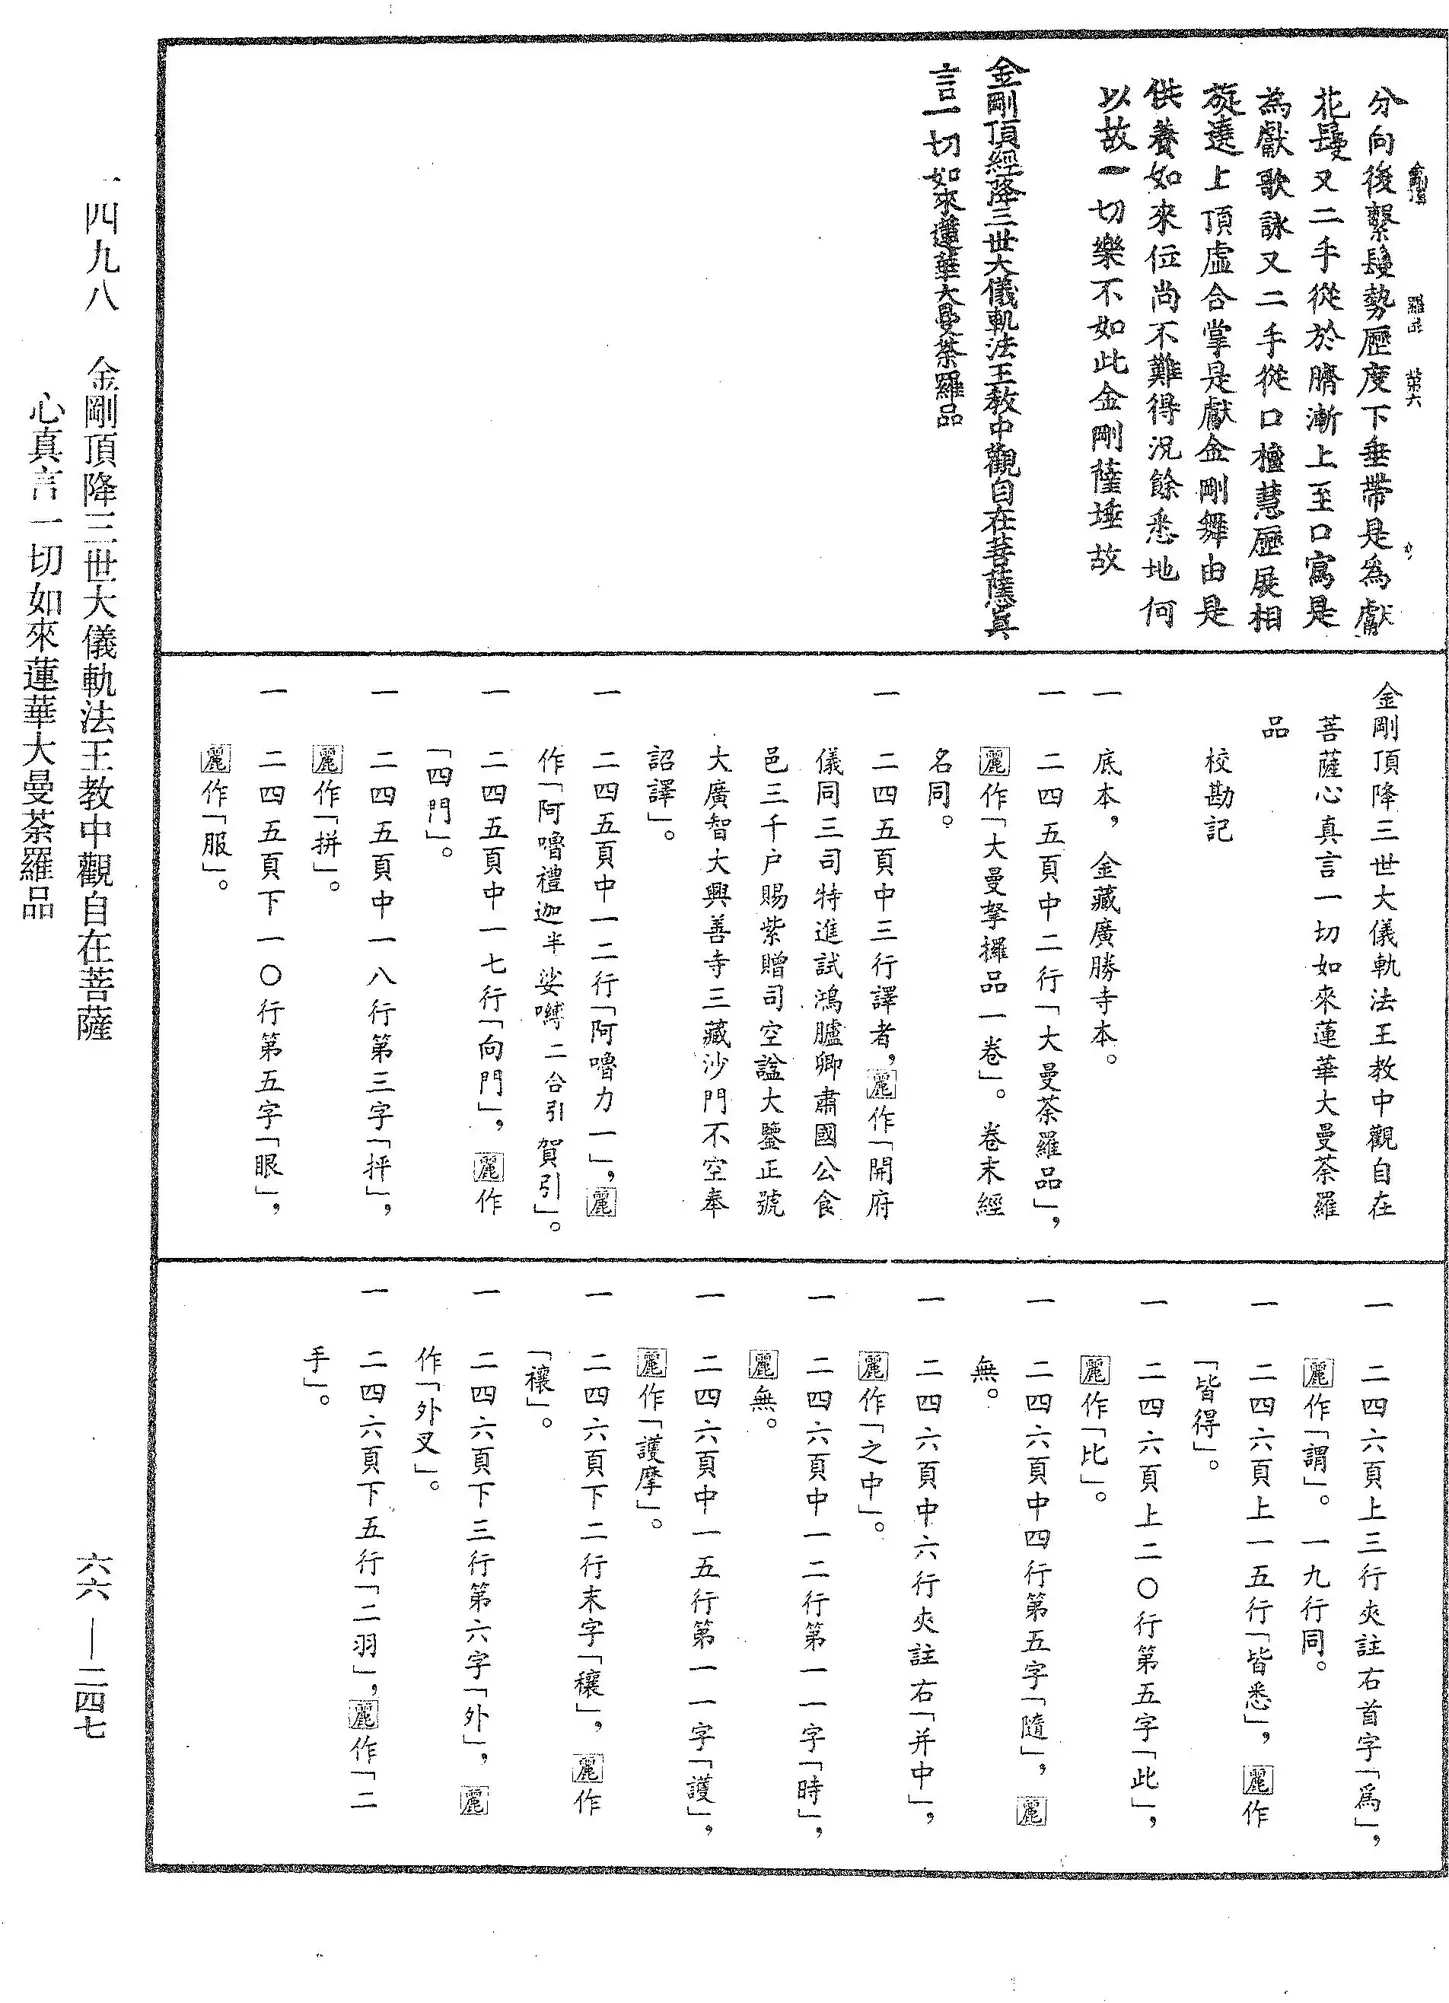 分向後繫鬘勢歷度下垂帶是為獻
花鬘又二手從於臍漸上至口寫是
為獻歌詠又二手從口檀慧歷展相
旋遶上頂虛合掌是獻金剛舞由是
供養如來位尚不難得況餘悉地何
以故一切樂不如此金剛薩埵故
金剛頂經降三世大儀軌法王教中觀自在菩薩心真
言一切如來蓮華大曼荼羅品
第六
金剛頂降三世大儀軌法王教中觀自在
菩薩心真言一切如來蓮華大曼荼羅
品
校勘記
一 底本,金藏廣勝寺本。
一 二四五頁中二行「大曼荼羅品」,
麗作「大曼拏攞品一卷」。卷末經
名同。
一 二四五頁中三行譯者,麗作「開府
儀同三司特進試鴻臚卿肅國公食
邑三千户賜紫贈司空諡大鑒正號
大廣智大興善寺三藏沙門不空奉
詔譯」。
一 二四五頁中一二行「阿嚕力一」,麗
作「阿嚕禮迦半娑嚩二合引賀引」。
一 二四五頁中一七行「向門」,麗作
「四門」。
一 二四五頁中一八行第三字「抨」,
麗作「拼」。
一 二四五頁下一〇行第五字「眼」,
麗作「服」。
一 二四六頁上三行夾註右首字「爲」,
麗作「謂」。一九行同。
一 二四六頁上一五行「皆悉」,麗作
「皆得」。
一 二四六頁上二〇行第五字「此」,
麗作「比」。
一 二四六頁中四行第五字「隨」,麗
無。
一 二四六頁中六行夾註右「并中」,
麗作「之中」。
一 二四六頁中一二行第一一字「時」,
麗無。
一 二四六頁中一五行第一一字「護」,
麗作「護摩」。
一 二四六頁下二行末字「穰」,麗作
「禳」。
一 二四六頁下三行第六字「外」,麗
作「外叉」。
一 二四六頁下五行「二羽」,麗作「二
手」。
一四九八 金剛頂降三世大儀軌法王教中觀自在菩薩
心真言一切如來蓮華大曼荼羅品
六六—二四七